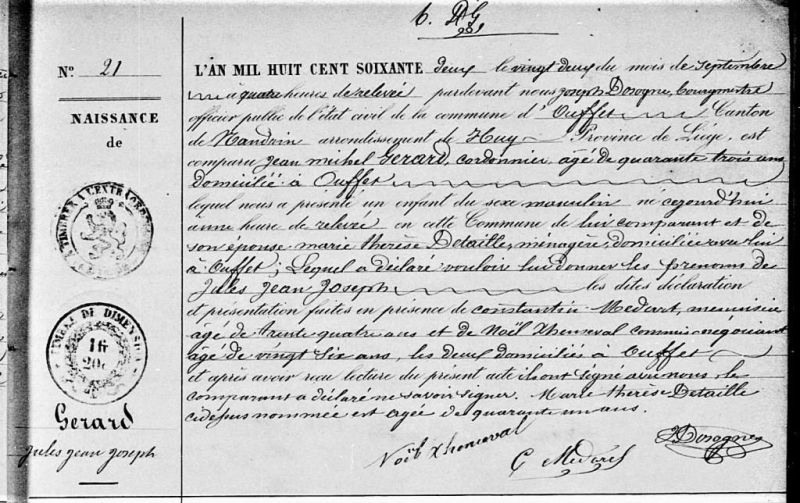 6. DG
Nº 21
NAISSANCE
de
Gerard
jules jean joseph
L'AN MIL HUIT CENT SOIXANTE deux le vingt deux du mois de Septembre
a quatre heures de relevée pardevant nous joseph Dosogne, bourgmestre
officier public de l'état civil de la commune d' Ouffet Canton
de Nandrin arrondissement de Huy Province de Liege, est
comparu jean michel Gerard, cordonnier, âgé de quarante trois ans
domicilié à Ouffet
lequel nous a présenté un enfant du sexe masculin né cejourd'hui
a une heure de relevée en cette Commune de lui comparant et de
son épouse marie thérèse Detaille, ménagère, domiciliée avec lui
à Ouffet; Lequel a déclaré vouloir lui donner les prenoms de
Jules Jean Joseph les dites déclaration
et présentation faites en présence de constantin Medart, menuisier
âgé de trente quatre ans et de Noël Xhenseval commis negociant
âgé de vingt six ans, les deux domiciliés à Ouffet
et après avoir reçu lecture du présent acte ils ont signé avec nous, le
comparant a déclaré ne savoir signer. Marie thérèse Detaille
cidessus nommée est agée de quarante un ans.
Noël Xhenseval
C Medart
J Dosogne
TIMBRE DE DIMENSION
16
20c